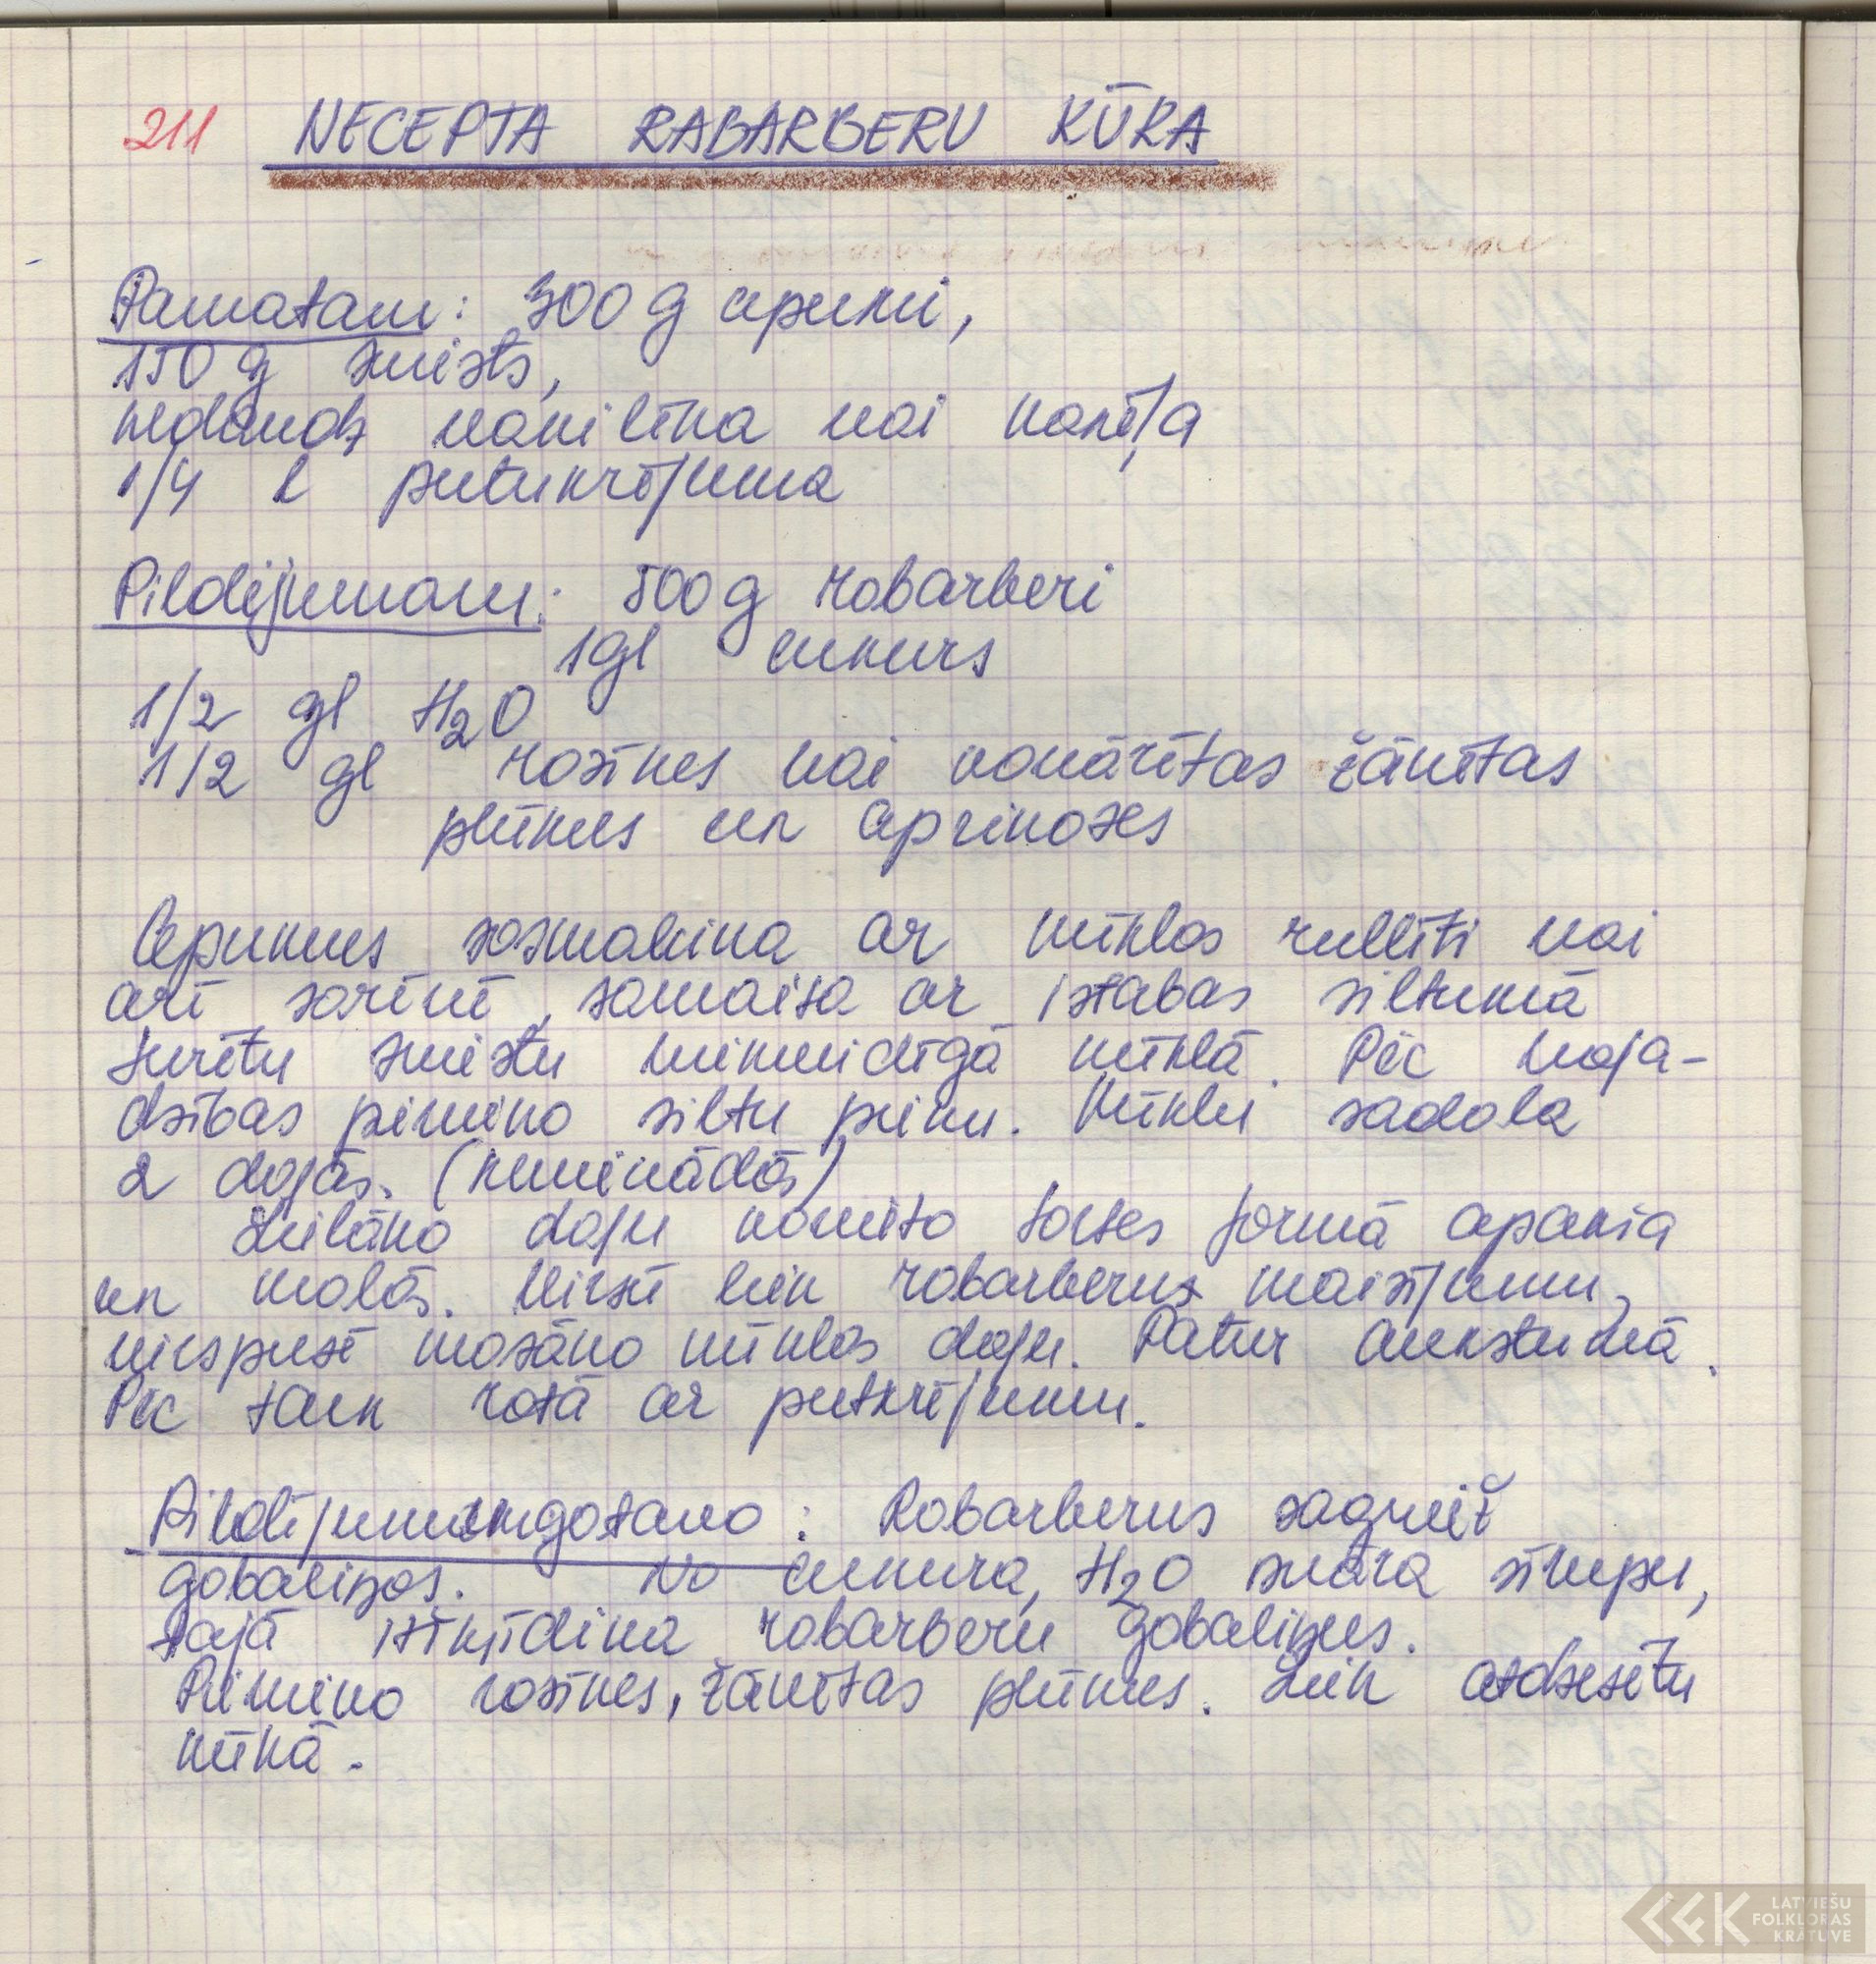 211 NECEPTA RABARBERU KŪKA
Pamatam: 300 g cepumi,
150 g sviests,
nedaudz vanilīna vai kanēļa
1/4 l putukrējuma
Pildījumam: 500 g rabarberi
1 gl cukurs
1/2 gl H2O
1/2 gl rozīnes vai novārītas žāvētas
plūmes un aprikozes
Cepumus sasmalcina ar mīklas rullīti vai
arī sarīvē, samaisa ar istabas siltumā
turētu sviestu viendabīgā mīklā. Pēc vaja-
dzības pievieno siltu pienu. Mīklu sadala
2 daļās.
Lielāko daļu tortes formā apakšā
un malās. Virsū liek rabarberus maisījumu,
virspusē mazāko mīklas daļu. Patur aukstumā.
Pēc tam rotā ar putkrējumu.
Pildījumu : Rabarberus sagriež
gabaliņos. No cukura, H2O svāra sīrupu,
tajā rabarberu gabaliņus.
Pievieno rozīnes, žāvētas plūmes. Liek atdzesētu
kūkā.
LATVIEŠU
FOLKLORAS
KRĀTUVE